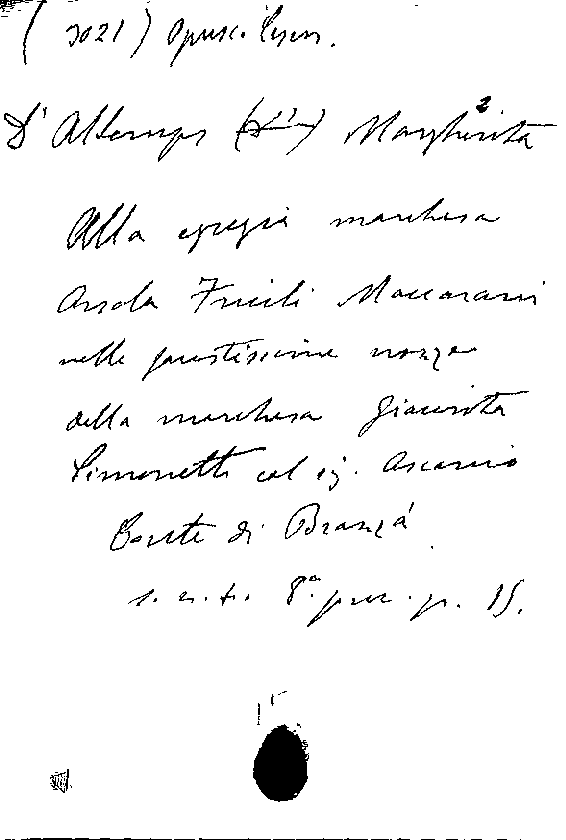 (3021) Opusc. Ceson.
D'Altemps (D') Margherita
Alla egregia marchesa
Orsola Fucili Maccarani
nelle faustissime nozze
della marchesa Giacinta
Simonetti col sig. Ascanio
Conte di Branzá
s. n. t. 8° picc. p. 15.